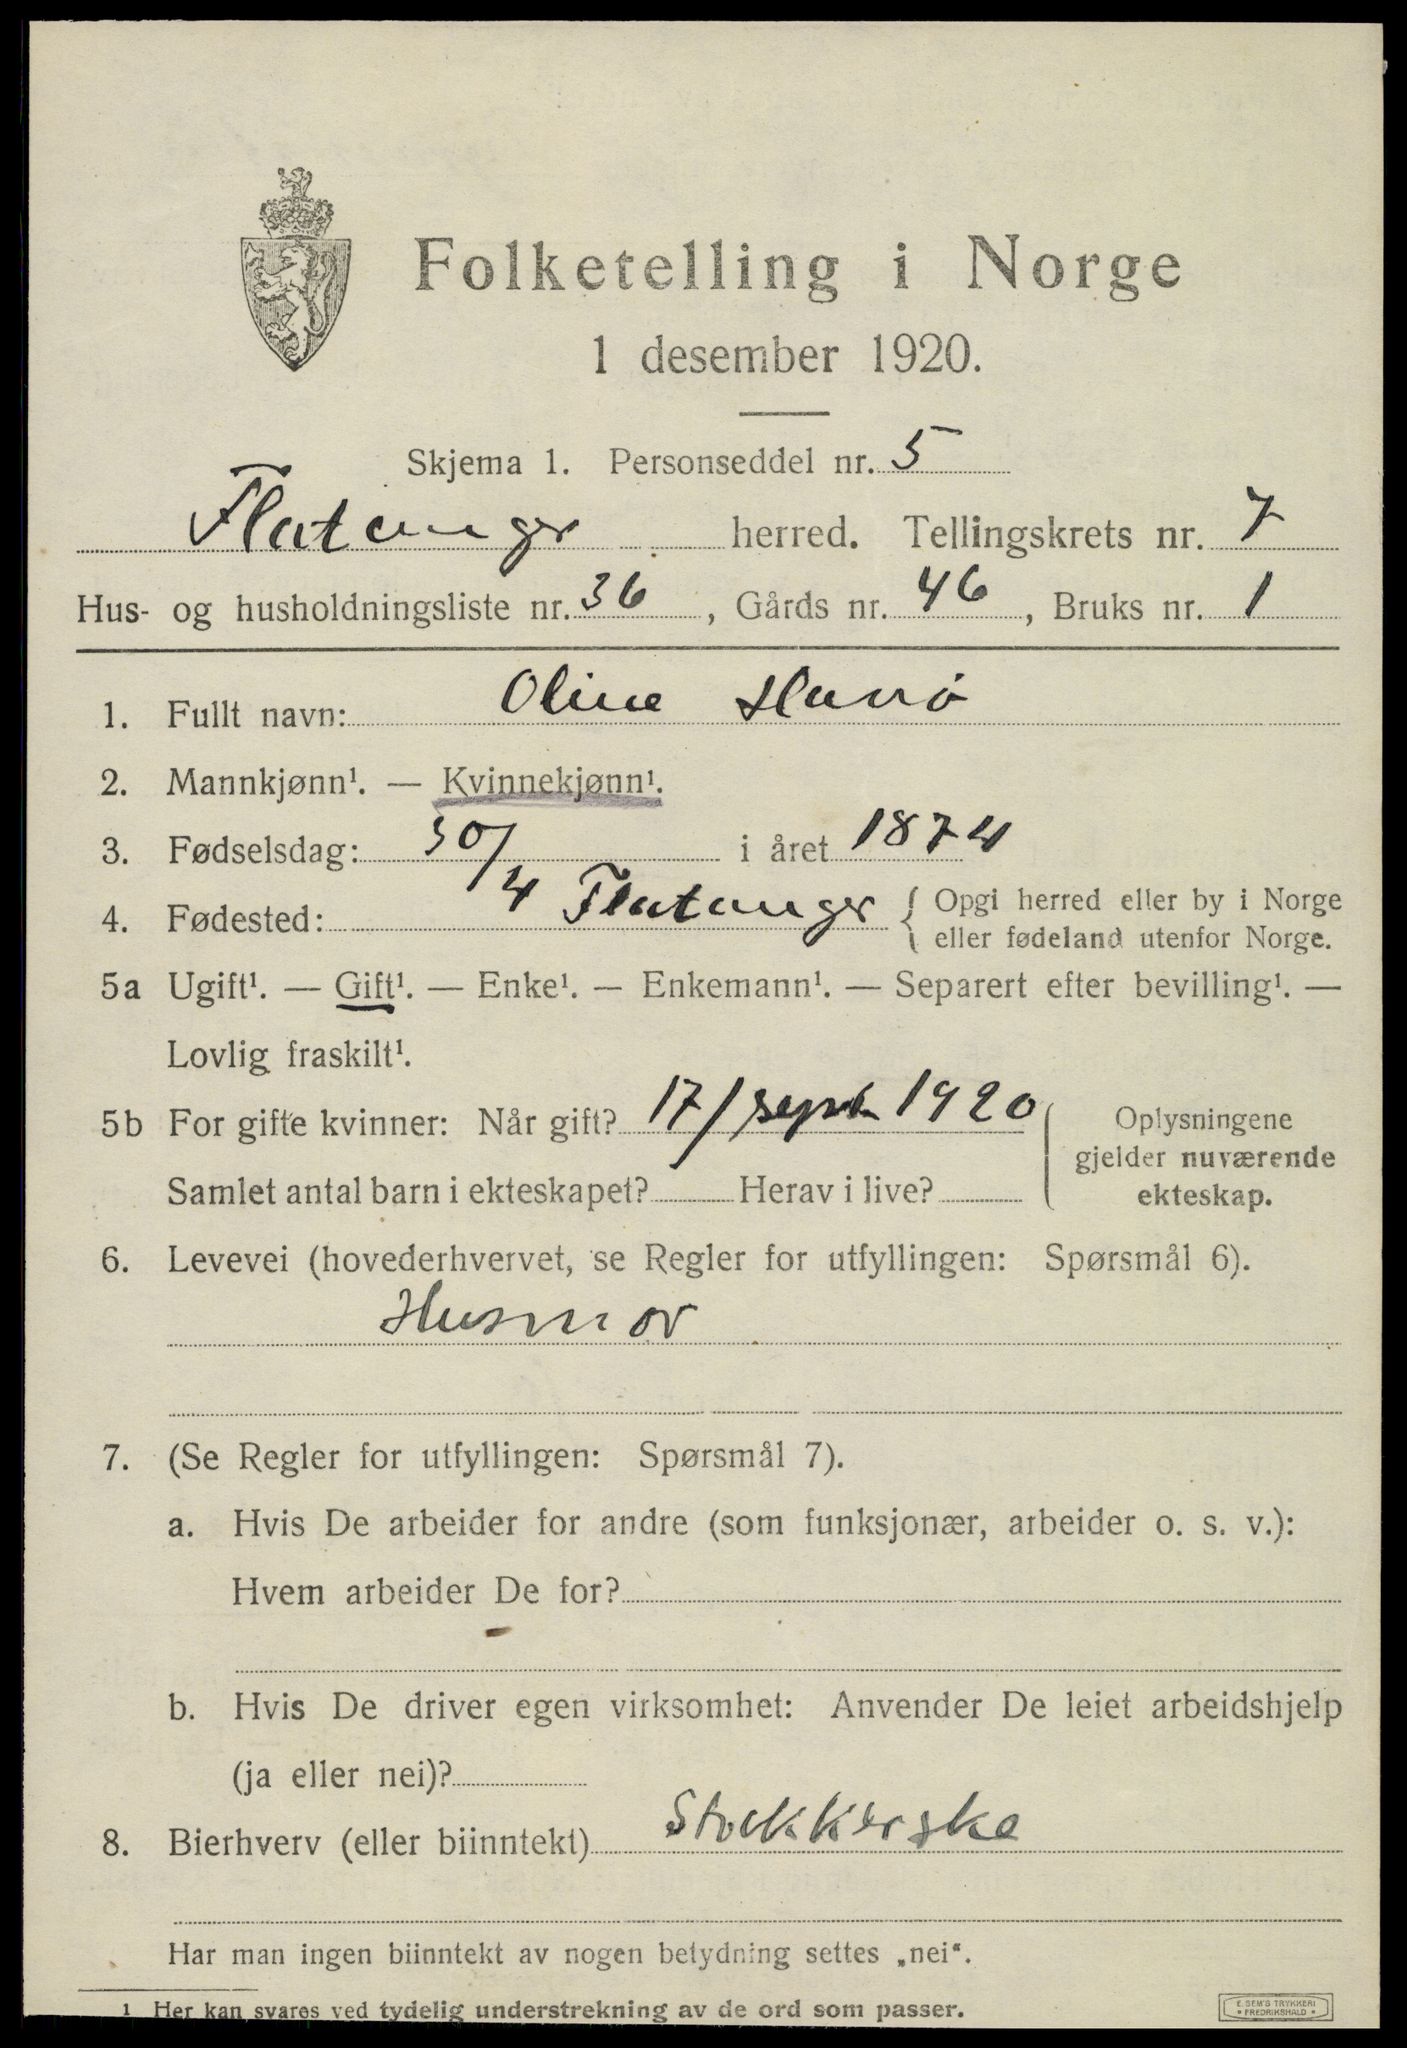 Folketelling i Norge
1 desember 1920.
Skjema 1. Personseddel nr. 5
Flatanger herred. Tellingskrets nr. 7
Hus- og husholdningsliste nr. 36, Gårds nr. 46, Bruks nr. 1
1. Fullt navn: Oline
2. Mannkjønn¹. — Kvinnekjønn¹.
3. Fødselsdag: 30/4 i året 1874
4. Fødested: Flatanger { Opgi herred eller by i Norge
eller fødeland utenfor Norge.
5a Ugift¹. — Gift¹. — Enke¹. — Enkemann¹. — Separert efter bevilling¹. —
Lovlig fraskilt¹.
5b For gifte kvinner: Når gift? 17/sept 1920
Samlet antal barn i ekteskapet? Herav i live?
Oplysningene
gjelder nuværende
ekteskap.
6. Levevei (hovederhvervet, se Regler for utfyllingen: Spørsmål 6).
Husmor
7. (Se Regler for utfyllingen: Spørsmål 7).
a. Hvis De arbeider for andre (som funksjonær, arbeider o. s. v.):
Hvem arbeider De for?
b. Hvis De driver egen virksomhet: Anvender De leiet arbeidshjelp
(ja eller nei)?
8. Bierhverv (eller biinntekt) Strikkerske
Har man ingen biinntekt av nogen betydning settes „nei“.
¹ Her kan svares ved tydelig understrekning av de ord som passer.
E. SEM'S TRYKKERI
• FREDRIKSHALD •